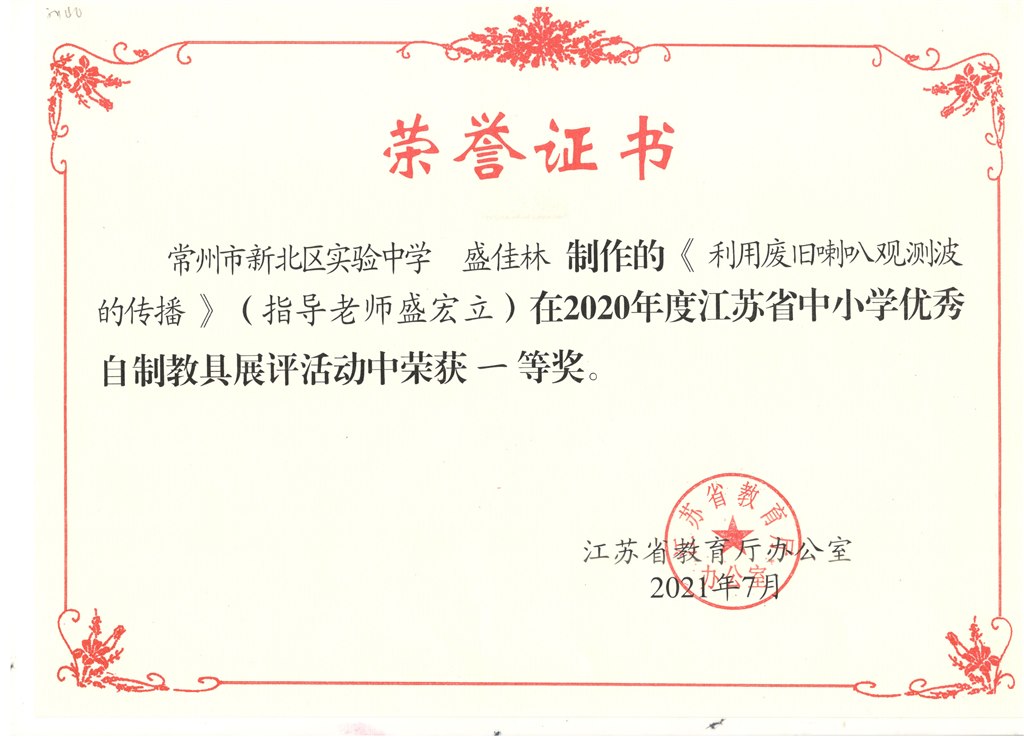 荣誉证书
常州市新北区实验中学 盛佳林 制作的《 利用废旧喇叭观测波
的传播 》（指导老师盛宏立）在2020年度江苏省中小学优秀
自制教具展评活动中荣获 一 等奖。
江苏省教育厅
办公室
江苏省教育厅办公室
2021年7月